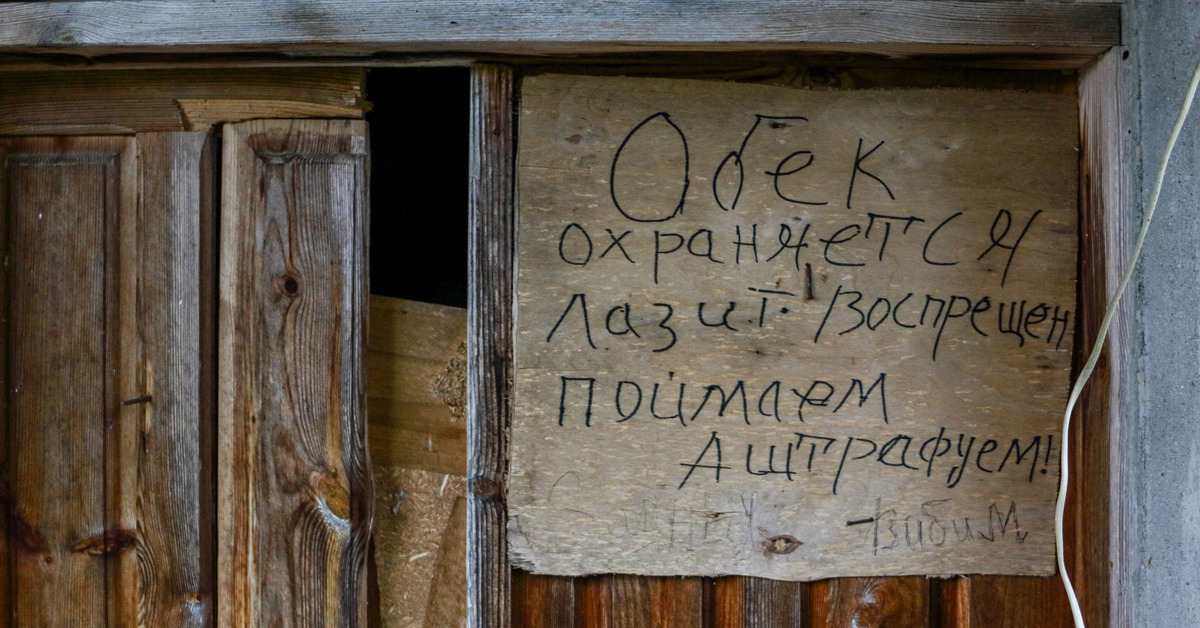 Обек
охраняется
Лазит. воспрещен
поймаем
Аштрафуем!
вибим